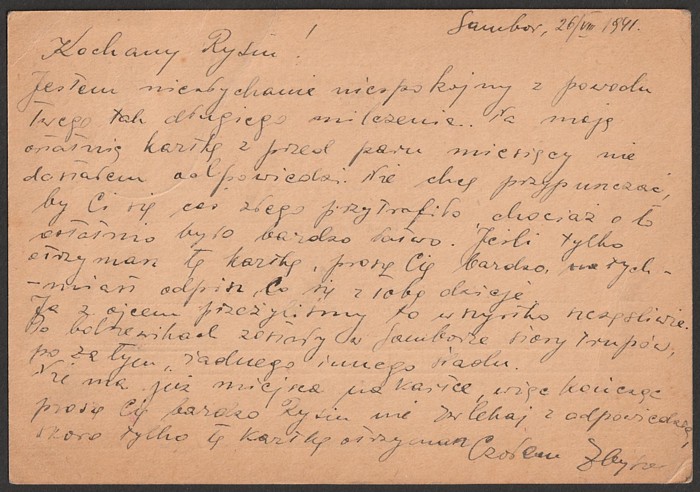 Sambor, 26/VIII 1941.
Kochany Rysiu!
Jestem niesłychanie niespokojny z powodu
Twego tak długiego milczenia. Na moją
ostatnią kartkę z przed paru miesięcy nie
dostałem odpowiedzi. Nie chcę przypuszczać,
by Ci się coś złego przytrafiło, chociaż o to
ostatnio było bardzo łatwo. Jeśli tylko
otrzymasz tę kartkę, proszę Cię bardzo, natych-
-miast odpisz, co się z Tobą dzieje.
Ja z ojcem przeżyliśmy to wszystko szczęśliwie.
Po bolszewikach zostały w Samborze stosy trupów,
po za tym, żadnego innego śladu.
Nie ma już miejsca na kartce więc kończąc
proszę Cię bardzo Rysiu nie zwlekaj z odpowiedzią,
skoro tylko tę kartkę otrzymasz Czołem Zbyszek